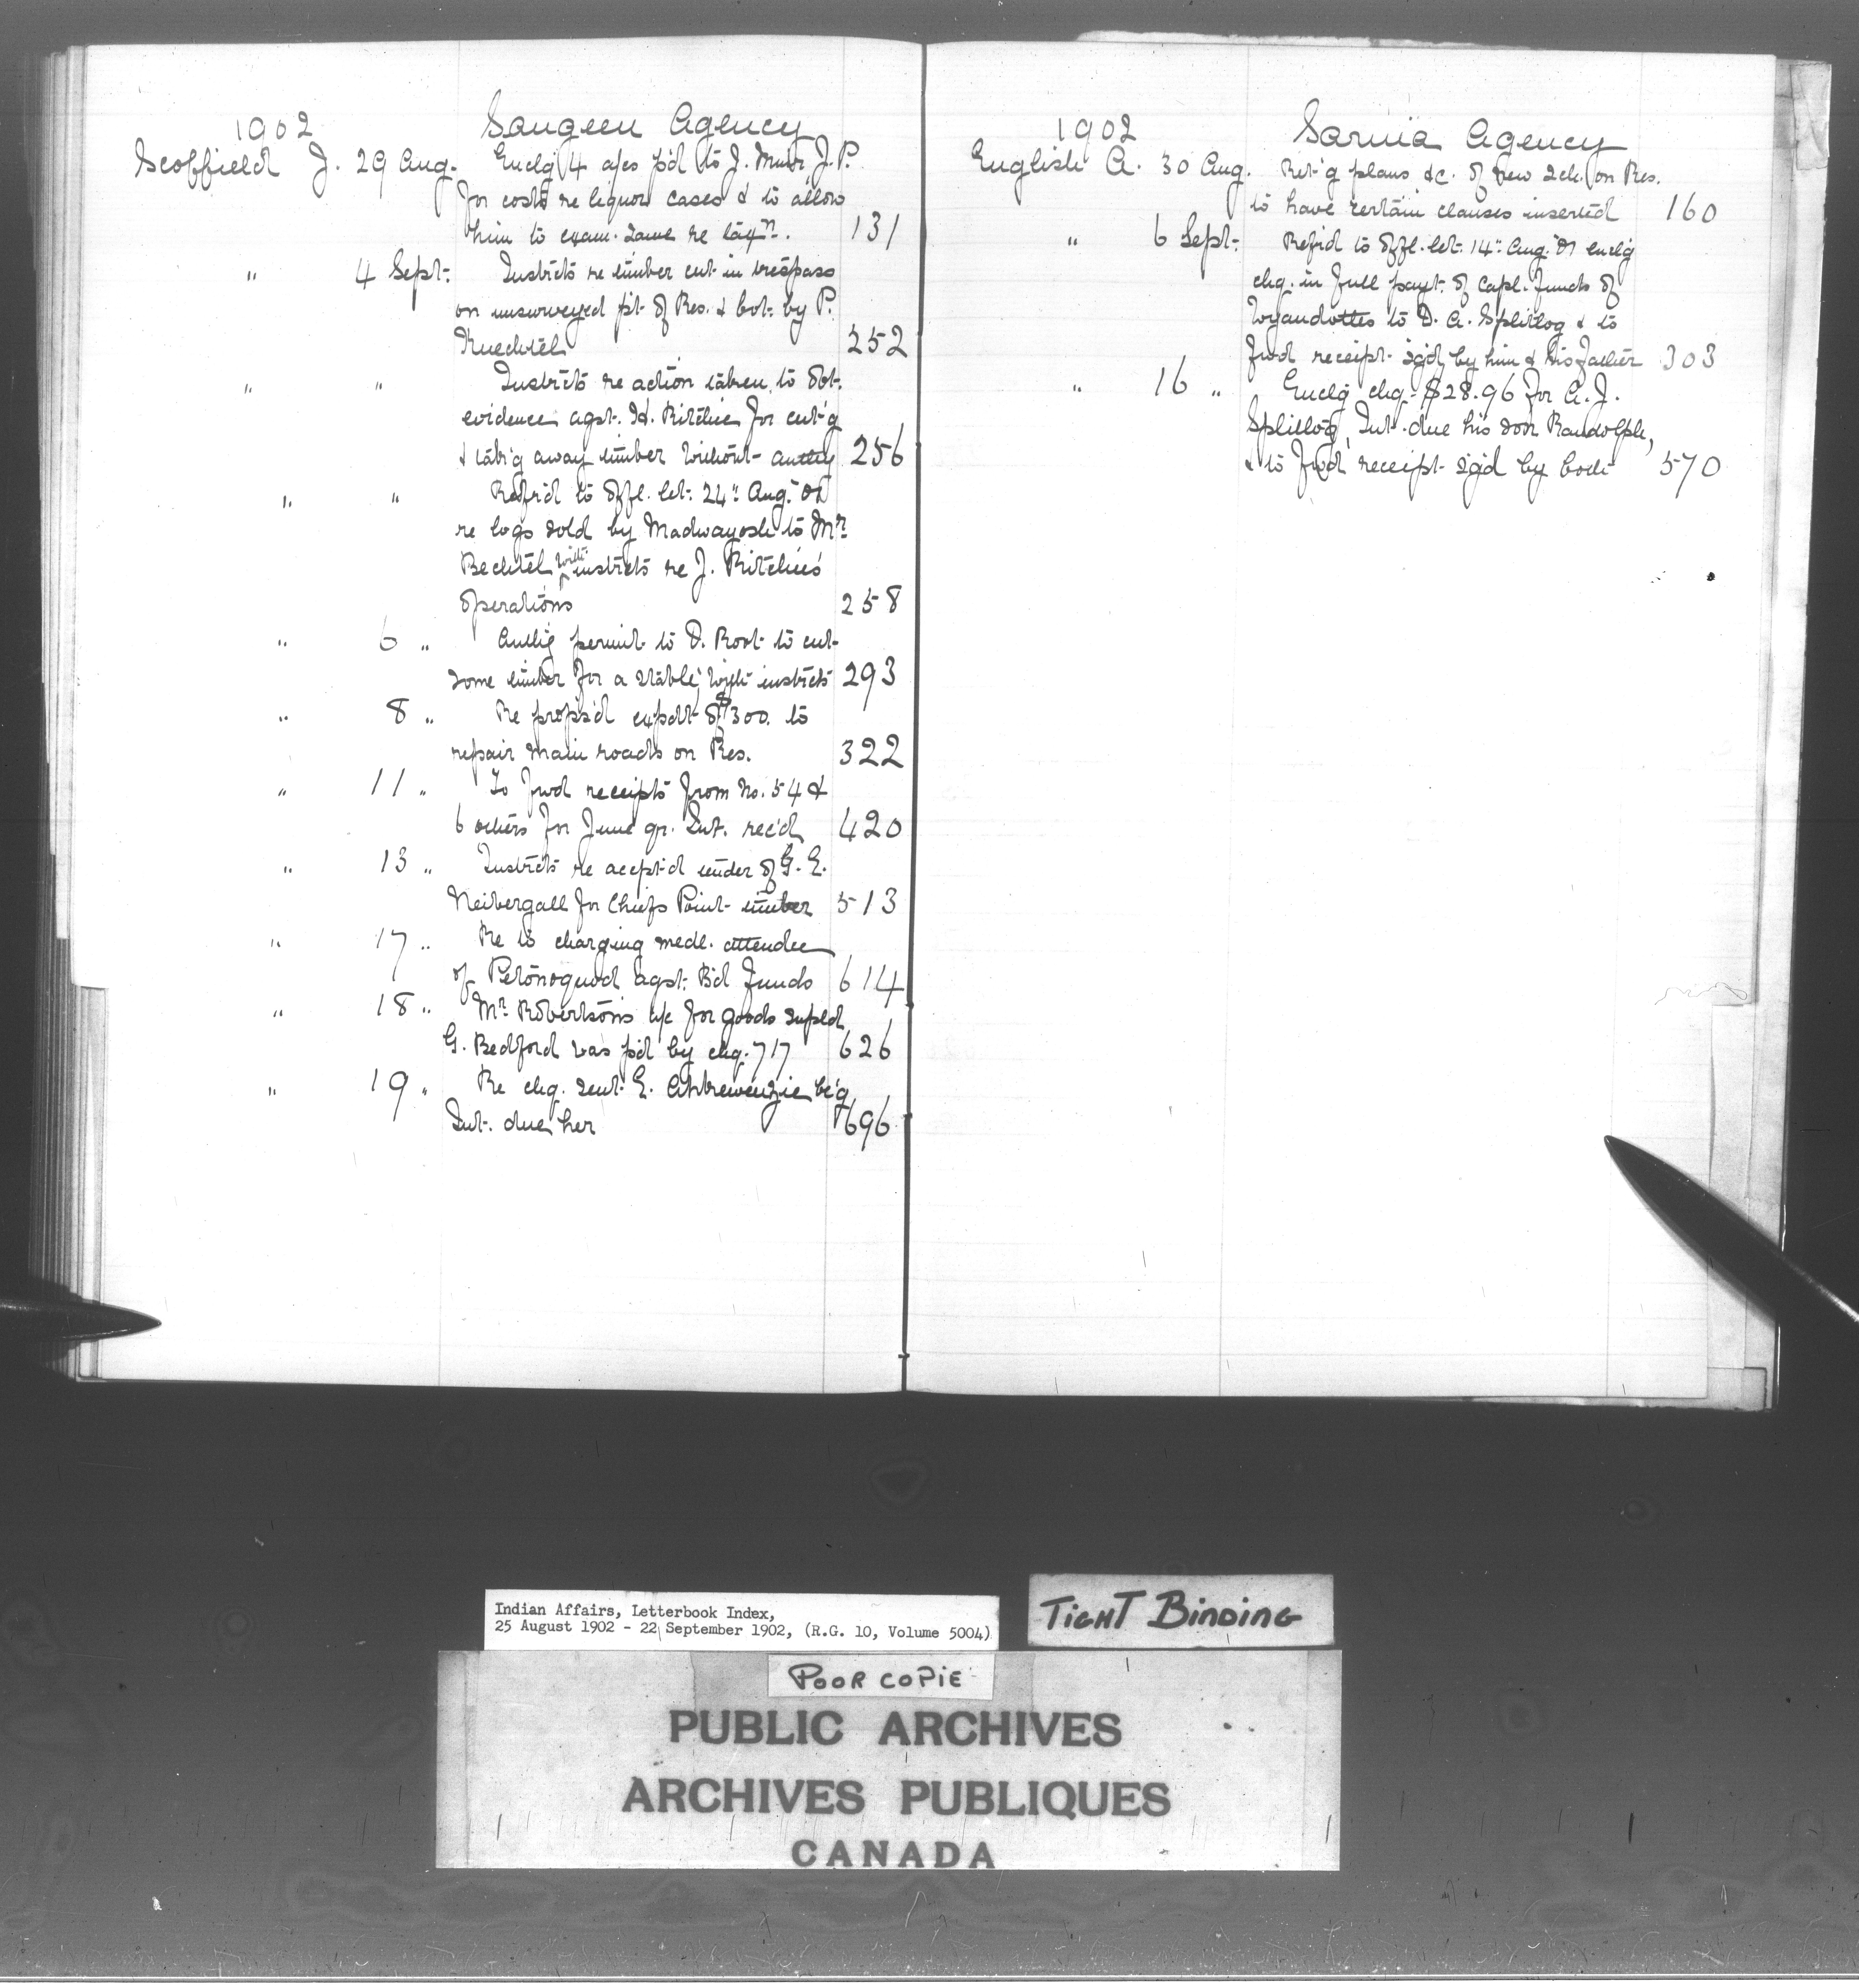 1902 Saugeen Agency
Scoffield J. 29 Aug. Enclg 4 a/cs p'd to J. Muir J.P.
for costs re liquor cases & to allow
him to exam. same re taxn. 131
" 4 Sept. Instrcts re timber cut in trespass
on unsurveyed pt. of Res. & bot. by P.
Knechtel 252
" " Instrcts re action taken to obt.
evidence agst. H. Ritchie for cut'g
& tak'g away timber without authy 256
" " Refr'd to offl. let. 24" Aug. 01
re logs sold by Madwayosh to Mr.
Bechtel with instrcts re J. Ritchie's
operations 258
" 6 " Authg permit to D. Root to cut
some timber for a stable, with instrcts 293
" 8 " Re propos'd expdt. of $300. to
repair main roads on Res. 322
" 11 " To fwd receipts from No. 54 &
6 others for June qr. Int. rec'd 420
" 13 " Instrcts re accept'd tender of G. E.
Neibergall for Chiefs Point timber 513
" 17 " Re to charging medl. attendce
of Petonoquod agst. B'd Funds 614
" 18 " Mr. Robertson's a/c for goods supld
G. Bedford was p'd by chq. 717 626
" 19 " Re chq. sent E. Akiewenzie be'g
Int. due her 696
1902 Sarnia Agency
English A. 30 Aug. Ret'g plans &c. of new sch. on Res.
to have certain clauses inserted 160
" 6 Sept. Refr'd to offl. let. 14" Aug. 01 enclg
chq. in full payt. of Capl. funds of
Wyandottes to D. A. Splitlog & to
fwd receipt sg'd by him & his father 303
" 16 " Enclg chq. $28.96 for A. J.
Splitlog, Int. due his son Randolph,
& to fwd receipt sg'd by both 570
Indian Affairs, Letterbook Index,
25 August 1902 - 22 September 1902, (R.G. 10, Volume 5004)
TIGHT BINDING
POOR COPIE
PUBLIC ARCHIVES
ARCHIVES PUBLIQUES
CANADA